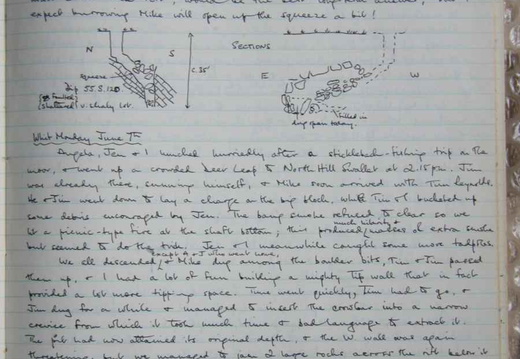 expect burrowing Mike will open up the squeeze a bit!
N S SECTIONS E W
squeeze
c.35'
dip 55 S.120
shattered v. shaly lst.
filled in
dug open today.
Whit Monday June 7th
Angela, Jen & I lunched hurriedly after a stickleback-fishing trip on the
moor, & went up a crowded Deer Leap to North Hill Swallet at 2.15 pm. Jim
was already there, sunning himself, & Mike soon arrived with Tim Reynolds.
He & Jim went down to lay a charge on the big block, while Tim & I bucketed up
some debris encouraged by Jen. The bang smoke refused to clear so we
lit a picnic-type fire at the shaft bottom; this produced much hilarity & masses of extra smoke
but seemed to do the trick. Jen & I meanwhile caught some more tadpoles.
We all descended, except A + J who went home, & Mike dug among the boulder bits, Tim & Jim passed
them up, & I had a lot of fun building a mighty tip wall that in fact
provided a lot more tipping space. Time went quickly, Tim had to go, &
Jim dug for a while & managed to insert the crowbar into a narrow
crevice from which it took much time & bad language to extract it.
The pit had now attained its original depth, & the W wall was again
threatening, but we managed to jam 2 large rocks across the rift below it